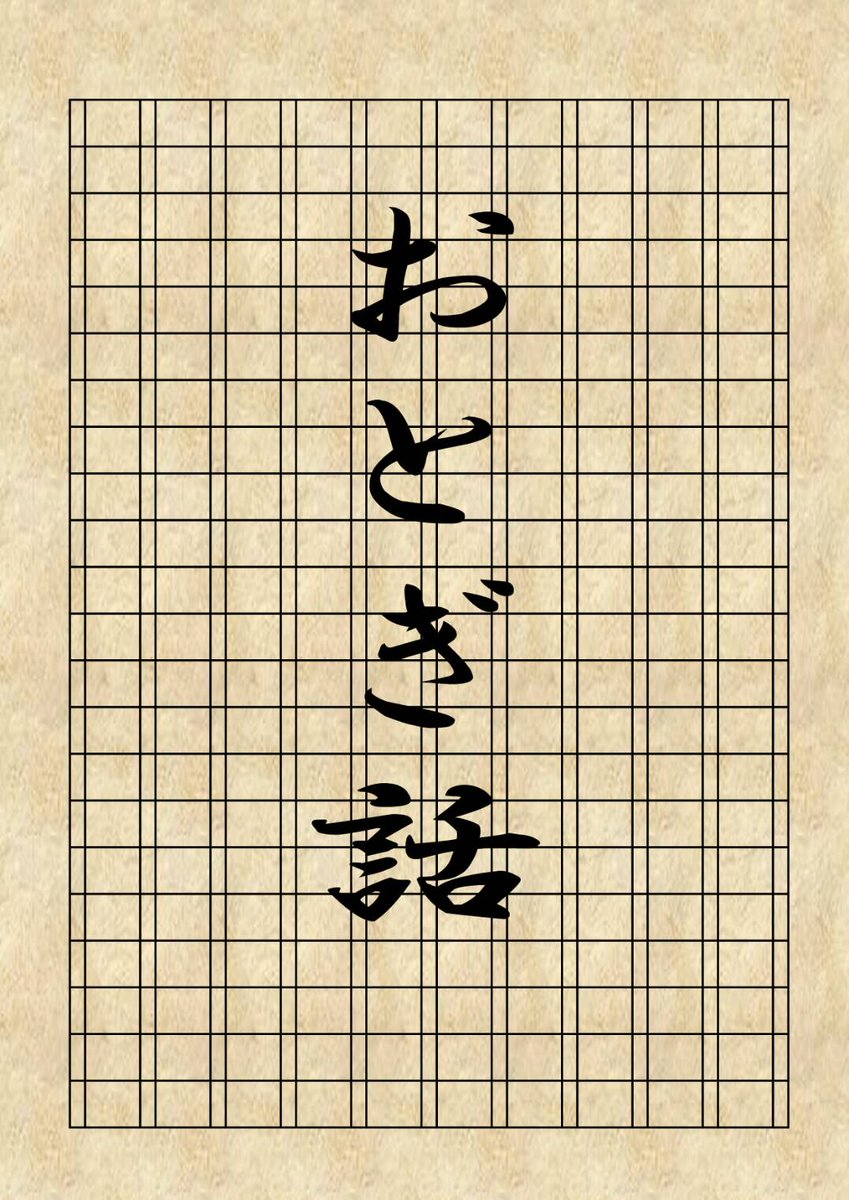 おとぎ話